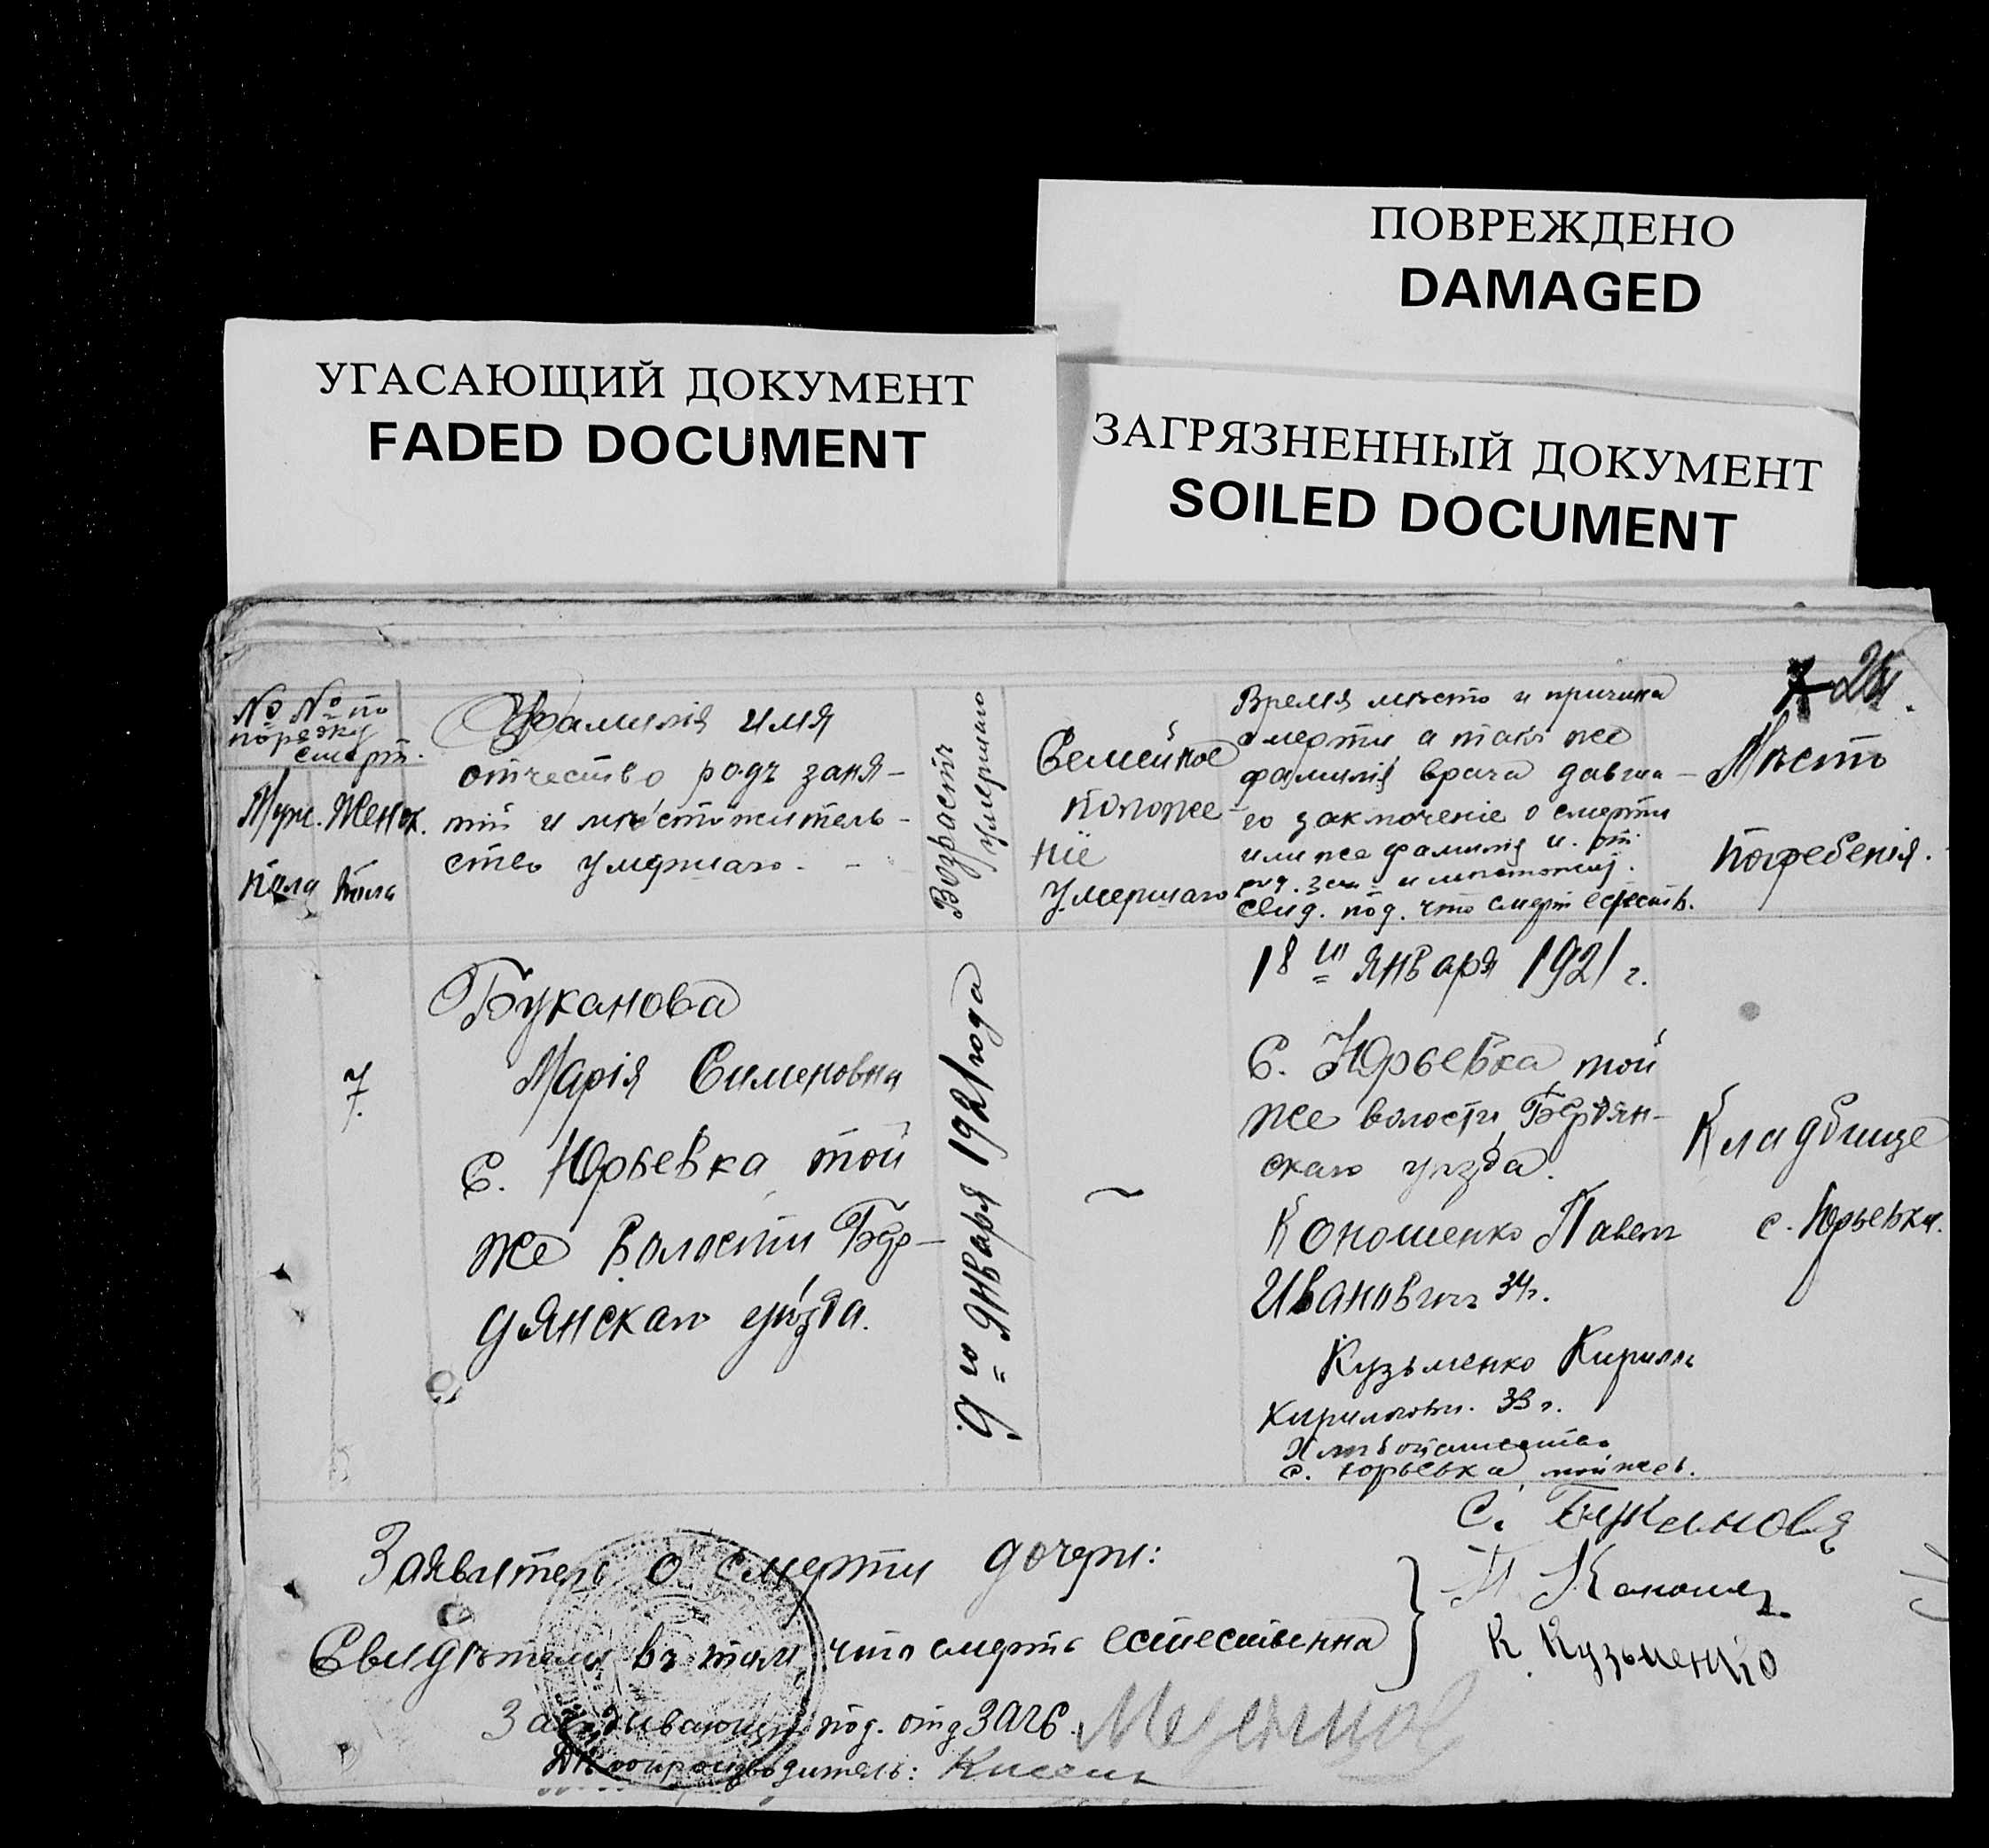 ПОВРЕЖДЕНО
DAMAGED
УГАСАЮЩИЙ ДОКУМЕНТ
FADED DOCUMENT
ЗАГРЯЗНЕННЫЙ ДОКУМЕНТ
SOILED DOCUMENT
№ № по
порядку
смерт.
Муж. Женск.
пола пола
Фамилія имя
отчество родъ заня-
тій и мѣстожитель-
ство умершаго.
Возрастъ
умершаго
Семейное
положе
ніе
умершаго
Время мѣсто и причина
смерти а такъ же
фамилія врача давша-
го заключеніе о смерти
или же фамилія и. от.
свид. под. что смерт естеств.
24.
Мѣсто
погребенія.
7.
Буканова
Марія Сименовна
с. Юрьевка той
же волости Бер-
дянскаго уѣзда.
9го января 1921 года
~
18го января 1921 г.
с. Юрьевка той
же волости Бердян-
скаго уѣзда.
Коношенко Павелъ
Ивановичъ 34 г.
Кузьменко Кириллъ
Кириллови. 33 г.
с. Юрьевка той же в.
Кладбище
с. Юрьевки.
Заявитель о смерти дочери:
С.
Свидѣтели въ том что смерть естественна
П.
К. Кузьменко
Завѣдывающій под. отд ЗАГС.
Дѣлопроизводитель: